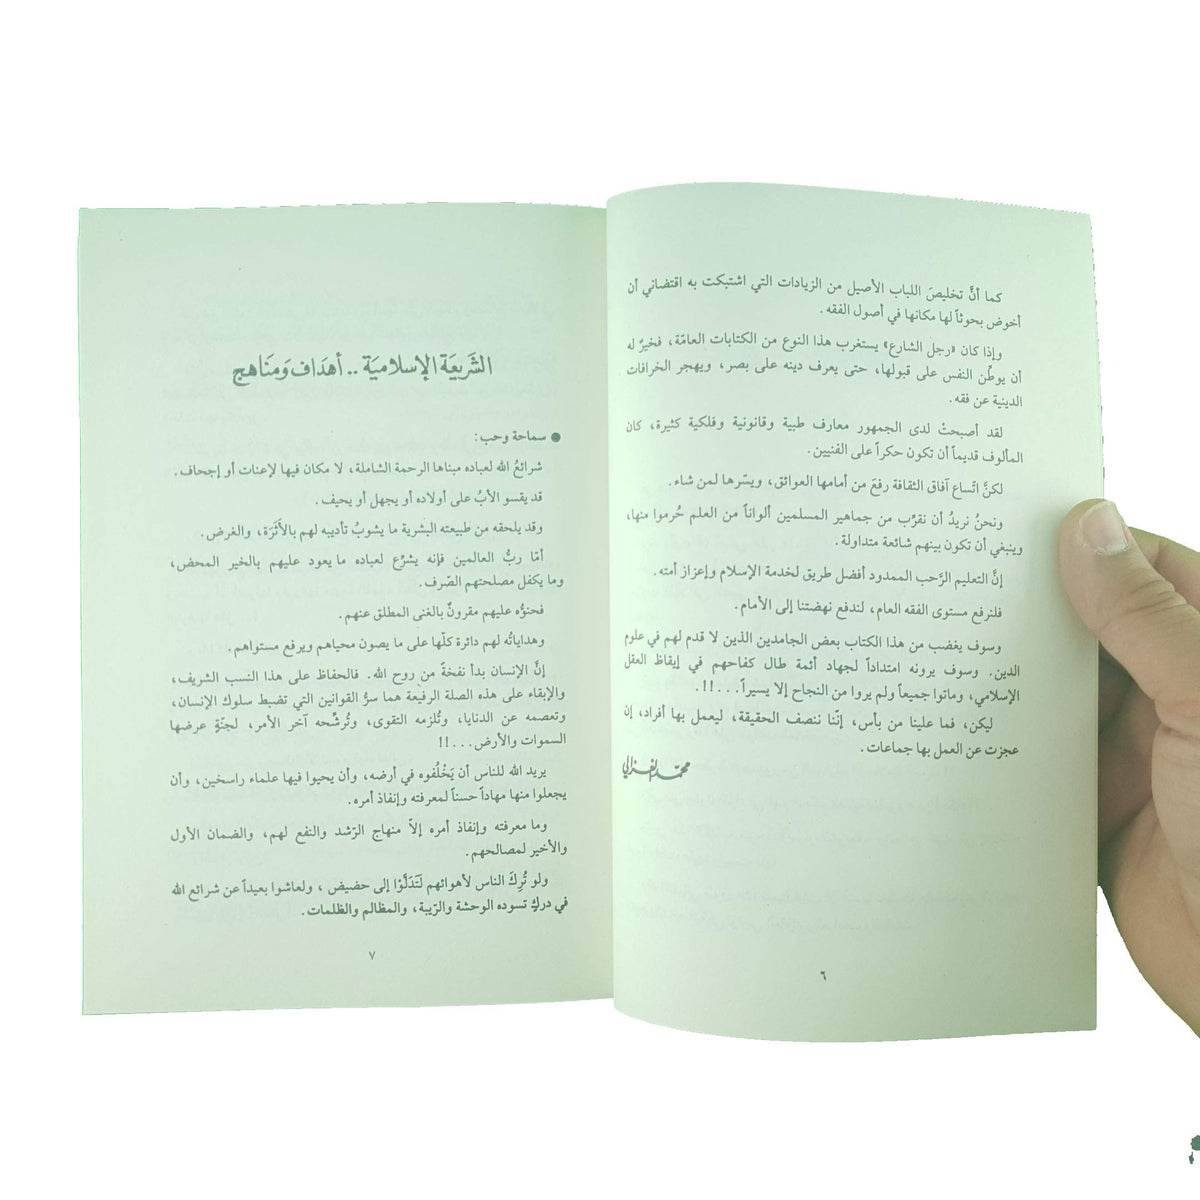 كما أنَّ تخليصَ اللباب الأصيل من الزيادات التي اشتبكت به اقتضاني أن
أخوض بحوثاً لها مكانها في أصول الفقه.
وإذا كان «رجل الشارع» يستغرب هذا النوع من الكتابات العامّة، فخيرٌ له
أن يوطِّن النفس على قبولها، حتى يعرف دينه على بصر، ويهجر الخرافات
الدينية عن فقه.
لقد أصبحتْ لدى الجمهور معارف طبية وقانونية وفلكية كثيرة، كان
المألوف قديماً أن تكون حكراً على الفنيين.
لكنَّ اتّساع آفاق الثقافة رفعَ من أمامها العوائق، ويسّرها لمن شاء.
ونحنُ نريدُ أن نقرِّب من جماهير المسلمين ألواناً من العلم حُرموا منها،
وينبغي أن تكون بينهم شائعة متداولة.
إنَّ التعليم الرَّحب الممدود أفضل طريق لخدمة الإسلام وإعزاز أمته.
فلنرفع مستوى الفقه العام، لندفع نهضتنا إلى الأمام.
وسوف يغضب من هذا الكتاب بعض الجامدين الذين لا قدم لهم في علوم
الدين. وسوف يرونه امتداداً لجهاد أئمة طال كفاحهم في إيقاظ العقل
الإسلامي، وماتوا جميعاً ولم يروا من النجاح إلا يسيراً...!!.
ليكن، فما علينا من بأس، إنّنا ننصف الحقيقة، ليعمل بها أفراد، إن
عجزت عن العمل بها جماعات.
محمد الغزالي
٦
الشَّريعَة الإسلاميَة .. أهدَاف وَمنَاهج
● سماحة وحب:
شرائعُ الله لعباده مبناها الرحمة الشاملة، لا مكان فيها لإعنات أو إجحاف.
قد يقسو الأبُ على أولاده أو يجهل أو يحيف.
وقد يلحقه من طبيعته البشرية ما يشوبُ تأديبه لهم بالأَثَرَة، والغرض.
أمّا ربُّ العالمين فإنه يشرِّع لعباده ما يعود عليهم بالخير المحض،
وما يكفل مصلحتهم الصّرف.
فحنوُّه عليهم مقرونٌ بالغنى المطلق عنهم.
وهداياتُه لهم دائرة كلّها على ما يصون محياهم ويرفع مستواهم.
إنَّ الإنسان بدأ نفخةً من روح الله. فالحفاظ على هذا النسب الشريف،
والإبقاء على هذه الصلة الرفيعة هما سرُّ القوانين التي تضبط سلوك الإنسان،
وتعصمه عن الدنايا، وتُلزمه التقوى، وتُرشّحه آخر الأمر، لجنّةٍ عرضها
السموات والأرض...!!
يريد الله للناس أن يَخْلُفوه في أرضه، وأن يحيوا فيها علماء راسخين، وأن
يجعلوا منها مهاداً حسناً لمعرفته وإنفاذ أمره.
وما معرفته وإنفاذ أمره إلاّ منهاج الرّشد والنفع لهم، والضمان الأول
والأخير لمصالحهم.
ولو تُرِكَ الناس لأهوائهم لَتَدَلَّوْا إلى حضيض، ولعاشوا بعيداً عن شرائع الله
في دركٍ تسوده الوحشة والرّيبة، والمظالم والظلمات.
٧